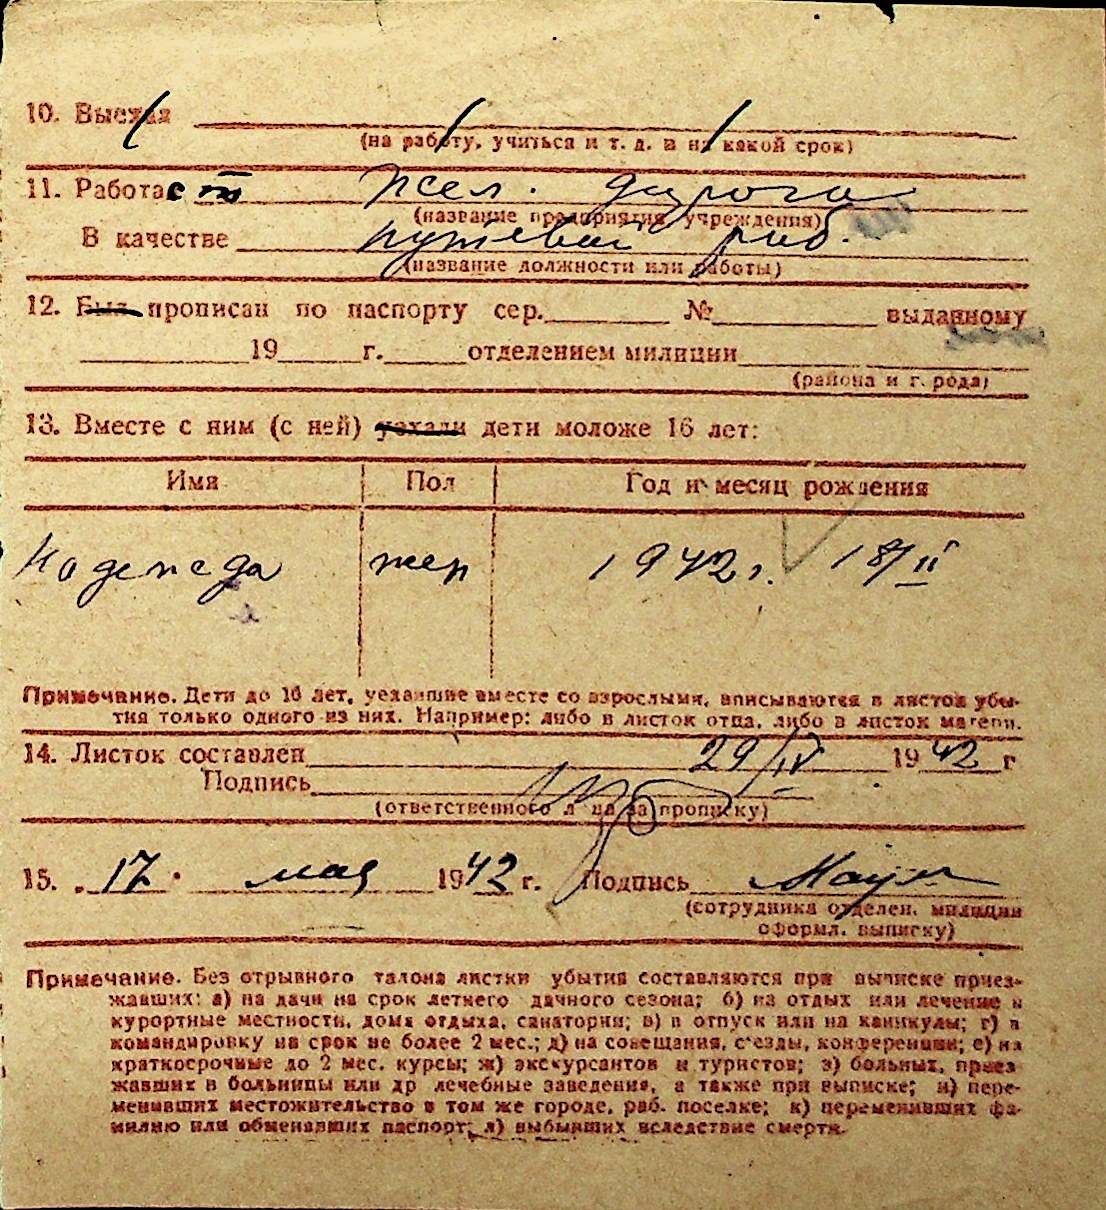 10. Выехал
(на работу, учиться и т. д. и на какой срок)
11. Работает Жел. дорога
(название предприятия учреждения)
В качестве путевой раб.
(название должности или работы)
12. Был прописан по паспорту сер. № выданному
19 г. отделением милиции
(района и города)
13. Вместе с ним (с ней) уехали дети моложе 16 лет:
Имя Пол Год и месяц рождения
Надежда жен 1942 г. 18/II
Примечание. Дети до 16 лет, уехавшие вместе со взрослыми, вписываются в листок убы-
тия только одного из них. Например: либо в листок отца, либо в листок матери.
14. Листок составлен 29/IV 1942 г
Подпись
(ответственного л на за прописку)
15. 17. мая 1942 г. Подпись
(сотрудника отделен. милиции
оформл. выписку)
Примечание. Без отрывного талона листки убытия составляются при выписке приез-
жавших: а) на дачи на срок летнего дачного сезона; б) на отдых или лечение в
курортные местности, дома отдыха, санатории; в) в отпуск или на каникулы; г) в
командировку на срок не более 2 мес.; д) на совещания, съезды, конференции; е) на
краткосрочные до 2 мес. курсы; ж) экскурсантов и туристов; з) больных, приез
жавших в больницы или др лечебные заведения, а также при выписке; и) пере-
менивших местожительство в том же городе, раб. поселке; к) переменивших фа-
милию или обменявших паспорт; л) выбывших вследствие смерти.